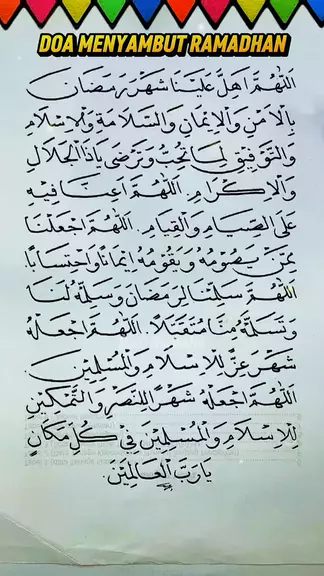 DOA MENYAMBUT RAMADHAN
اَللّٰهُمَّ اَهِلَّ عَلَيْنَا شَهْرَ رَمَضَانَ
بِالْاَمْنِ وَالْاِيْمَانِ وَالسَّلَامَةِ وَالْاِسْلَامِ
وَالتَّوْفِيْقِ لِمَا تُحِبُّ وَتَرْضَى يَاذَاالْجَلَالِ
وَالْاِكْرَامِ. اَللّٰهُمَّ اَعِنَّا فِيْهِ
عَلَى الصِّيَامِ وَالْقِيَامِ. اَللّٰهُمَّ اجْعَلْنَا
مِمَّنْ يَصُوْمُهُ وَيَقُوْمُهُ اِيْمَانًا وَاحْتِسَابًا
اَللّٰهُمَّ سَلِّمْنَا لِرَمَضَانَ وَسَلِّمْهُ لَنَا
وَتَسَلَّمْهُ مِنَّا مُتَقَبَّلًا. اَللّٰهُمَّ اجْعَلْهُ
شَهْرَ عِزٍّ لِلْاِسْلَامِ وَالْمُسْلِمِيْنَ.
اَللّٰهُمَّ اجْعَلْهُ شَهْرًا لِلنَّصْرِ وَالتَّمْكِيْنِ
لِلْاِسْلَامِ وَالْمُسْلِمِيْنَ فِيْ كُلِّ مَكَانٍ
يَارَبَّ الْعَالَمِيْنَ.